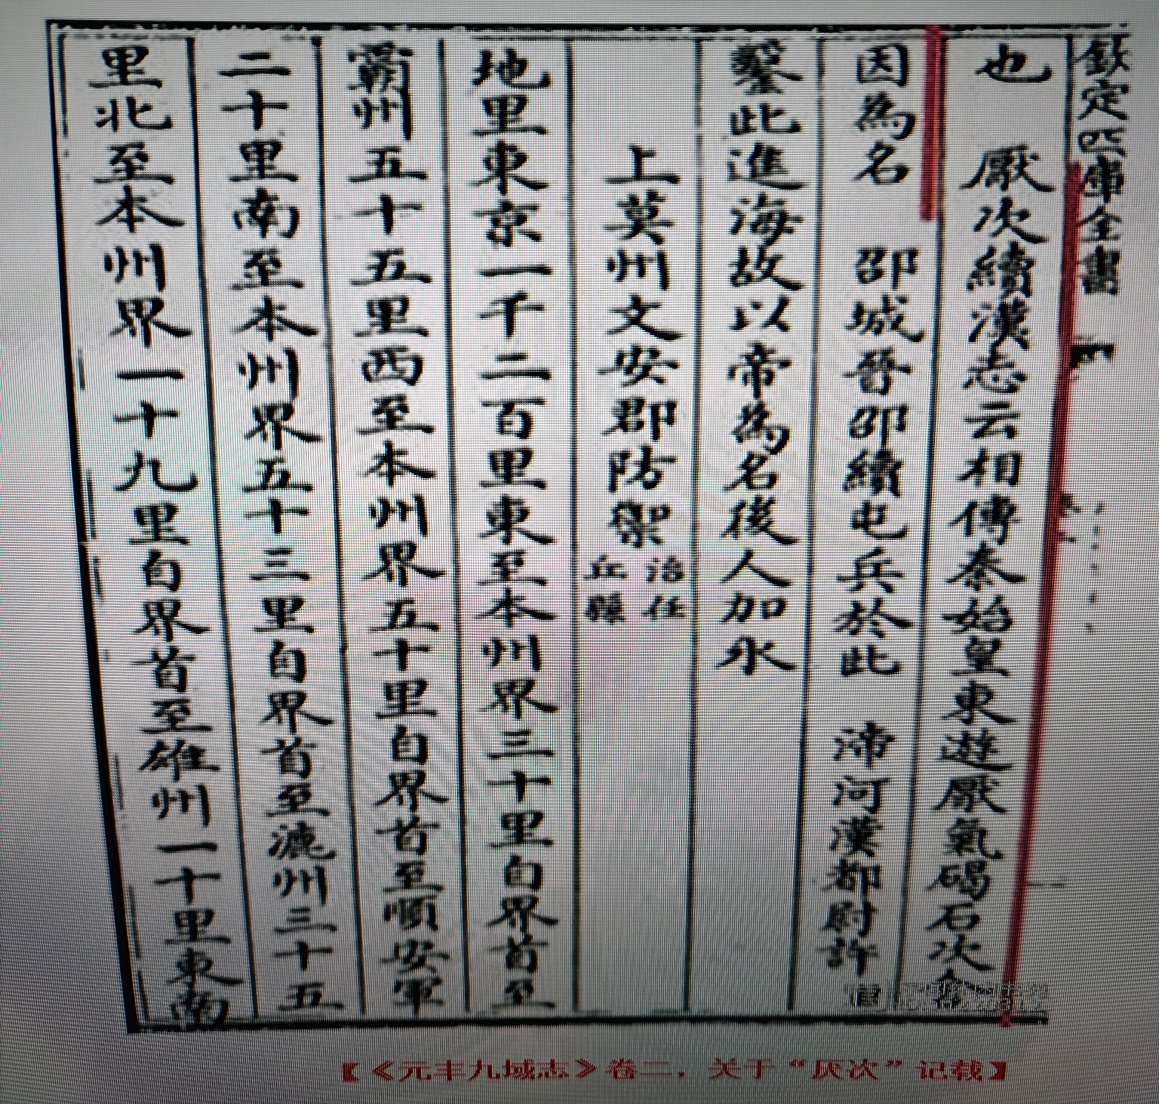 欽定四庫全書
也　厭次續漢志云相傳秦始皇東遊厭氣碣石次舍
因為名　邵城晉邵續屯兵於此　沛河漢都尉許
鑿此進海故以帝為名後人加水
上莫州文安郡防禦治任丘縣
地里東京一千二百里東至本州界三十里自界首至
霸州五十五里西至本州界五十里自界首至順安軍
二十里南至本州界五十三里自界首至瀛州三十五
里北至本州界一十九里自界首至雄州一十里東南
【《元丰九域志》卷二，关于“厌次”记载】